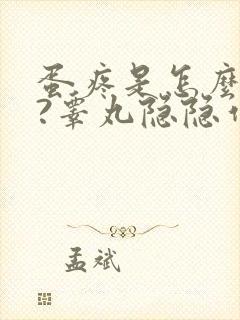 蛋疼是怎麼
?睾丸隐隐
孟斌